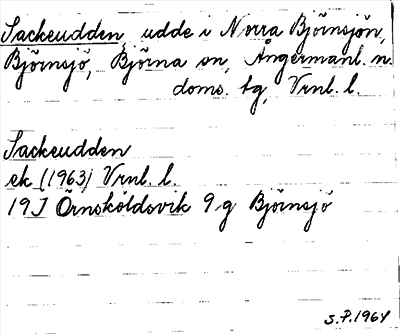 Sackeudden, udde i Norra Björnsjön,
Björnsjö, Björna sn, Ångermanl. n.
doms. tg, Vrnl. l.
Sackeudden
ek (1963) Vrnl. l.
19J Örnsköldsvik 9g Björnsjö
S.P. 1964